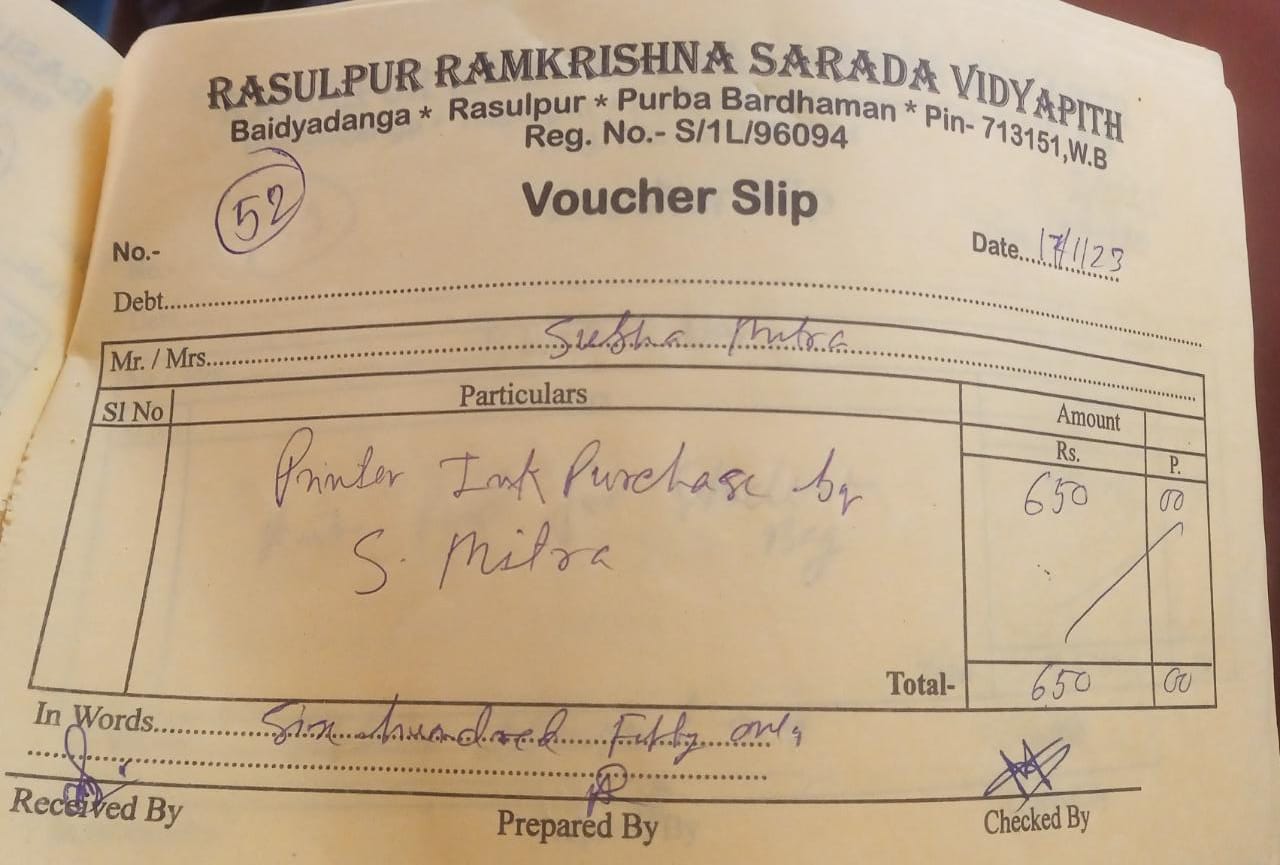 RASULPUR RAMKRISHNA SARADA VIDYAPITH
Baidyadanga * Rasulpur * Purba Bardhaman * Pin- 713151,W.B
Reg. No.- S/1L/96094
Voucher Slip
No.- 52
Date.....17/1/23
Debt.....
Mr. / Mrs..... Subha Mitra
Sl No Particulars Amount
Rs. P.
Printer Ink Purchase by 650 00
S. Mitra
Total- 650 00
In Words..... Six hundred Fifty only
Received By Prepared By Checked By